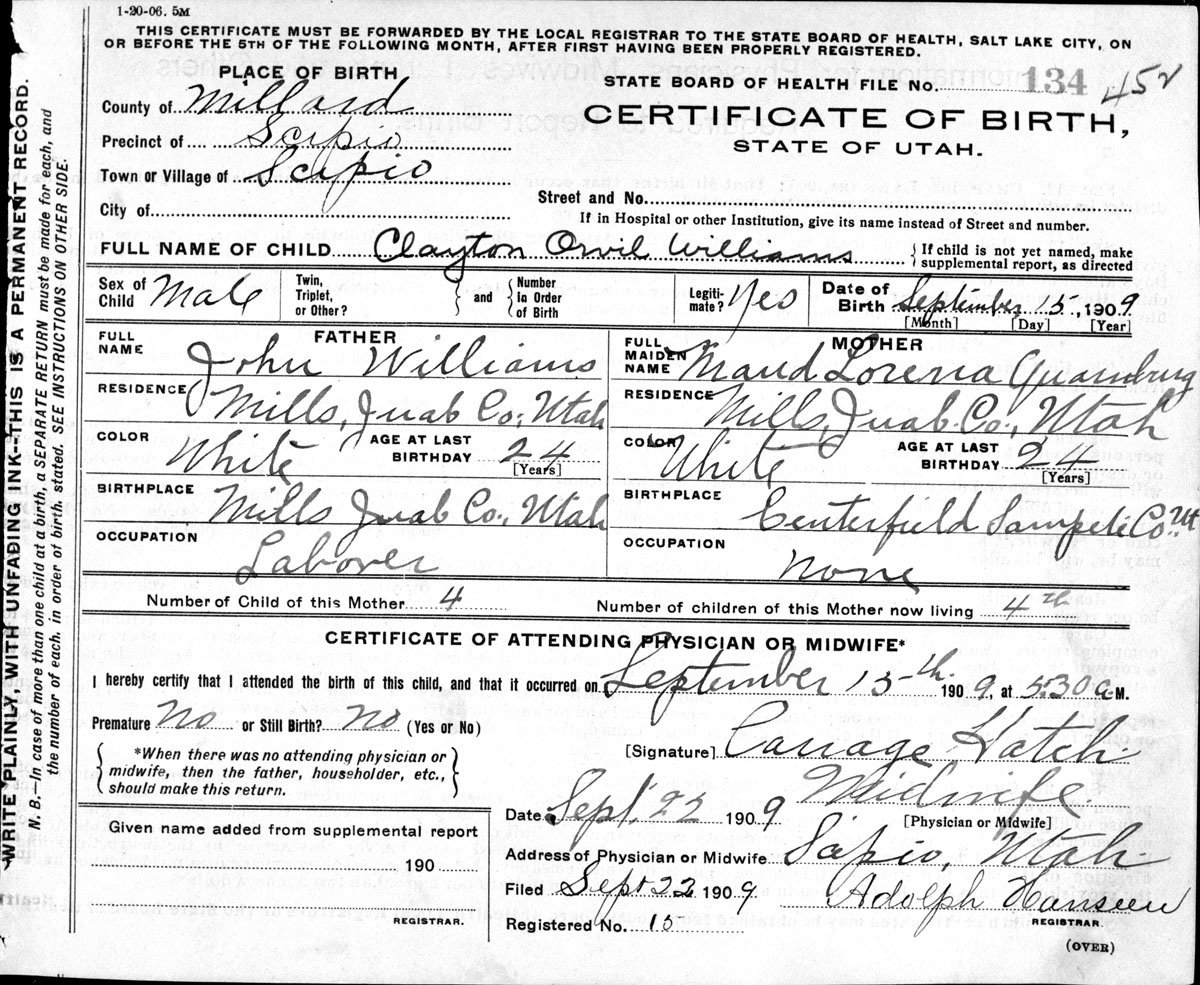 1-20-06. 5M
THIS CERTIFICATE MUST BE FORWARDED BY THE LOCAL REGISTRAR TO THE STATE BOARD OF HEALTH, SALT LAKE CITY, ON
OR BEFORE THE 5TH OF THE FOLLOWING MONTH, AFTER FIRST HAVING BEEN PROPERLY REGISTERED.
WRITE PLAINLY, WITH UNFADING INK—THIS IS A PERMANENT RECORD.
N. B.—In case of more than one child at a birth, a SEPARATE RETURN must be made for each, and
the number of each, in order of birth, stated. SEE INSTRUCTIONS ON OTHER SIDE.
PLACE OF BIRTH
County of Millard
Precinct of Scipio
Town or Village of Scipio
City of
STATE BOARD OF HEALTH FILE No. 134 452
CERTIFICATE OF BIRTH,
STATE OF UTAH.
Street and No.
If in Hospital or other Institution, give its name instead of Street and number.
FULL NAME OF CHILD Clayton Orvil Williams { If child is not yet named, make
supplemental report, as directed
Sex of Child Male
Twin, Triplet, or Other? } and { Number In Order of Birth
Legiti-mate? Yes
Date of Birth September 15, 1909
[Month] [Day] [Year]
FATHER
FULL NAME John Williams
RESIDENCE Mills, Juab Co., Utah
COLOR White AGE AT LAST BIRTHDAY 24
[Years]
BIRTHPLACE Mills Juab Co., Utah
OCCUPATION Laborer
MOTHER
FULL MAIDEN NAME Maud Lorena
RESIDENCE Mills, Juab Co., Utah
COLOR White AGE AT LAST BIRTHDAY 24
[Years]
BIRTHPLACE Centerfield Sampete Co., Ut
OCCUPATION None
Number of Child of this Mother 4 Number of children of this Mother now living 4th
CERTIFICATE OF ATTENDING PHYSICIAN OR MIDWIFE*
I hereby certify that I attended the birth of this child, and that it occurred on September 15th 1909. at 5:30 a.M.
Premature No or Still Birth? No (Yes or No)
{ *When there was no attending physician or
midwife, then the father, householder, etc.,
should make this return. }
[Signature] Hatch
Midwife.
[Physician or Midwife]
Date Sept. 22 1909
Address of Physician or Midwife Sipio, Utah
Filed Sept 22 1909 Adolph Hansen
REGISTRAR.
Registered No. 15
(OVER)
Given name added from supplemental report
190
REGISTRAR.